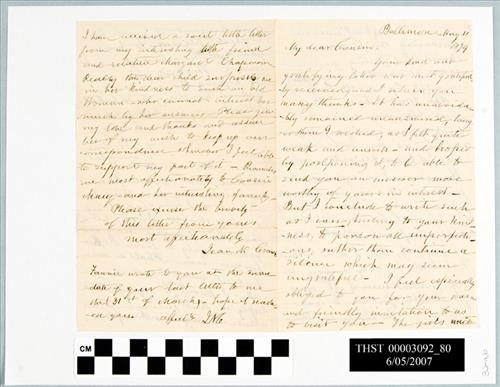 I have received a sweet little letter
from my interesting little friend
and relative Margaret Chapman
Really the dear child surprises me
in her kindness to such an old
Woman - who cannot interest her
much by her answers - Please give
my love and thanks and assure
her of my wish to keep up our
correspondence whenever I feel able
to support my part of it - Remember
me most affectionately to Cousin
and her interesting family -
Please excuse the brevity
of this letter from yours
most affectionately
Fannie wrote to you at the same
date of your last letter to me
the 31st of March - hope it reach-
ed you
Baltimore May 11
1879
My dear Cousin,
Your kind and
gratifying letter was most grateful-
ly received, and I return you
many thanks - It has unavoida-
bly remained unanswered, longer
than I wished, as I felt quite
weak and unwell - and hoped
by postponing it, to be able to
send you an answer more
worthy of yours in interest -
But I conclude to write such
as I can, trusting to your kind-
ness, to pardon all imperfecti-
ons, rather than continue a
silence which may seem
ungrateful - I feel especially
obliged to you for your warm
and friendly invitation to us
to visit you - The girls unite
CM
THST 00003092_80
6/05/2007